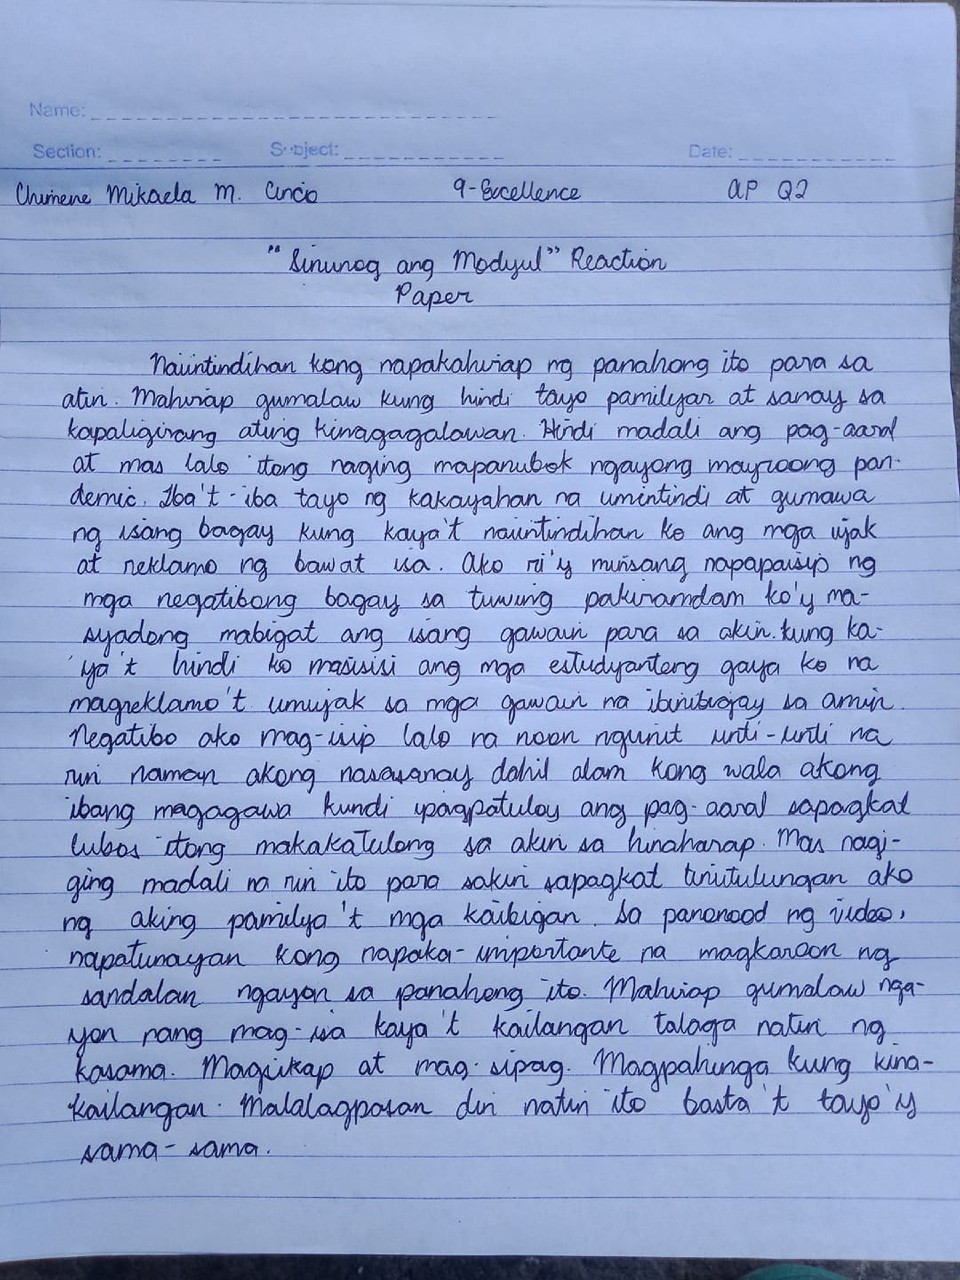 Name:
Section: Subject: Date:
Mikaela M. 9-Excellence AP Q2
"Sinunog ang Modyul" Reaction
Paper
Naiintindihan kong napakahirap ng panahong ito para sa
atin. Mahirap gumalaw kung hindi tayo pamilyar at sanay sa
kapaligirang ating kinagagalawan. Hindi madali ang pag-aaral
at mas lalo itong naging mapanubok ngayong mayroong pan-
demic. Iba't-iba tayo ng kakayahan na umintindi at gumawa
ng isang bagay kung kaya't naiintindihan ko ang mga iyak
at reklamo ng bawat isa. Ako ri'y minsang napapaisip ng
mga negatibong bagay sa tuwing pakiramdam ko'y ma-
syadong mabigat ang isang gawain para sa akin. kung ka-
ya't hindi ko masisisi ang mga estudyanteng gaya ko na
magreklamo't umiyak sa mga gawain na ibinibigay sa amin.
Negatibo ako mag-isip lalo na noon ngunit unti-unti na
rin naman akong nasasanay dahil alam kong wala akong
ibang magagawa kundi ipagpatuloy ang pag-aaral sapagkat
lubos itong makakatulong sa akin sa hinaharap. Mas nagi-
ging madali na rin ito para sakin sapagkat tinutulungan ako
ng aking pamilya't mga kaibigan. Sa panonood ng video,
napatunayan kong napaka-importante na magkaroon ng
sandalan ngayon sa panahong ito. Mahirap gumalaw nga-
yon nang mag-isa kaya't kailangan talaga natin ng
kasama. Magsikap at mag-sipag. Magpahinga kung kina-
kailangan. Malalagpasan din natin ito basta't tayo'y
sama-sama.